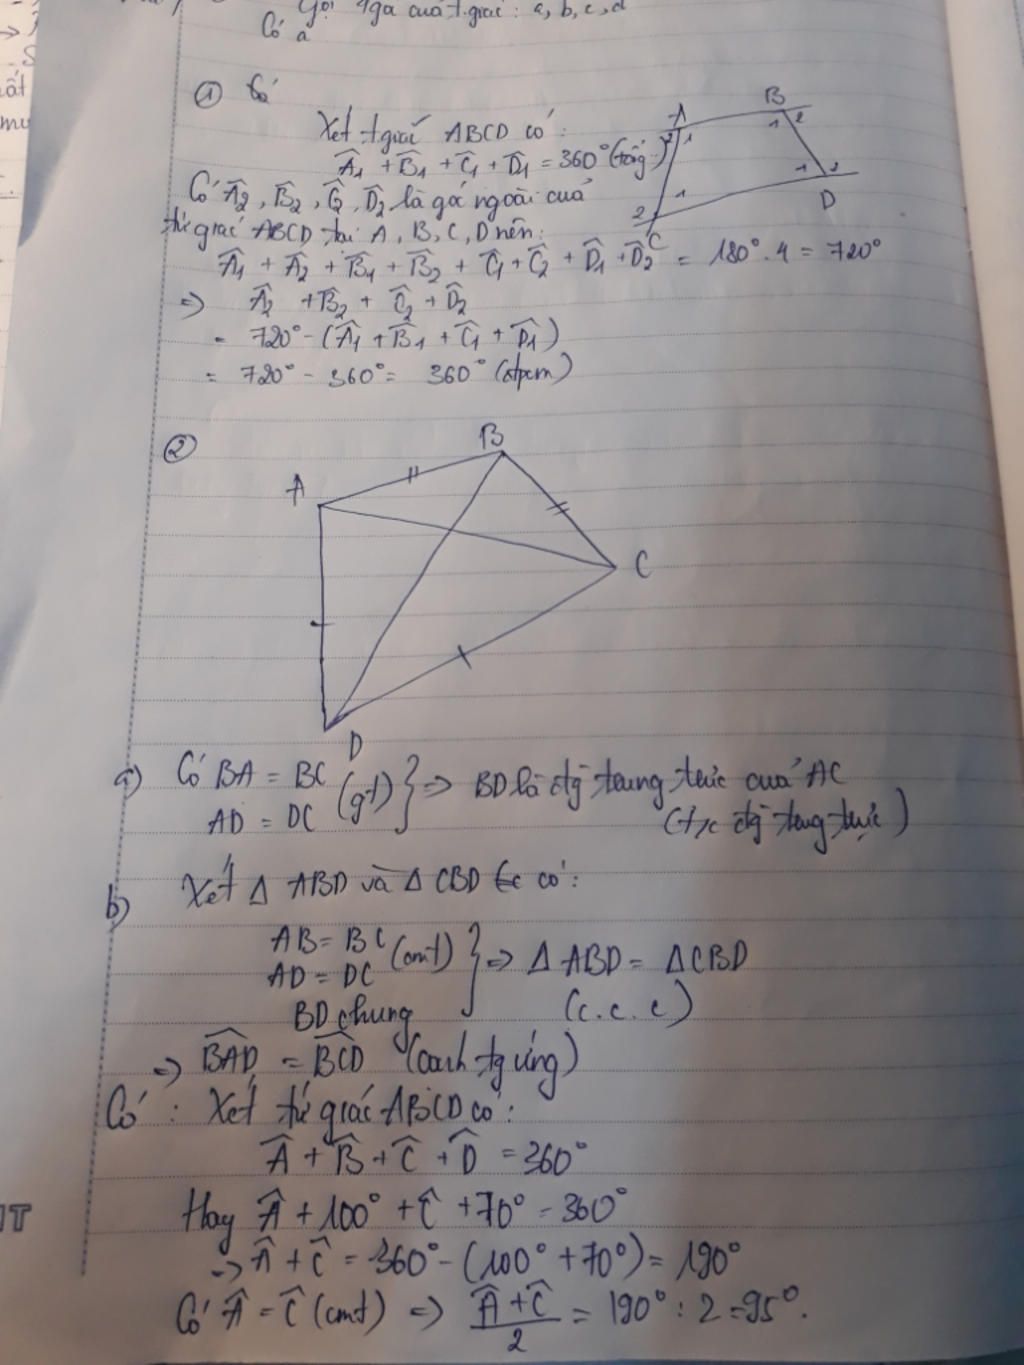 Gọi 4 góc của t.giác : a, b, c, d
Có a
① Có
Xét t.giác ABCD có :
Â₁ + B̂₁ + Ĉ₁ + D̂₁ = 360° (tổng)
Có Â₂, B̂₂, Ĉ₂, D̂₂ là góc ngoài của
tứ giác ABCD tại A, B, C, D nên:
Â₁ + Â₂ + B̂₁ + B̂₂ + Ĉ₁ + Ĉ₂ + D̂₁ + D̂₂ = 180° . 4 = 720°
=> Â₂ + B̂₂ + Ĉ₂ + D̂₂
= 720° - (Â₁ + B̂₁ + Ĉ₁ + D̂₁)
= 720° - 360° = 360° (đpcm)
A
B
C
D
1
2
1
2
1
2
1
2
②
B
A
C
D
a) Có BA = BC
AD = DC
(gt) } => BD là đg trung trực của AC
(t/c đg trung trực)
b) Xét Δ ABD và Δ CBD có :
AB = BC
AD = DC
(cmt)
BD chung
} => Δ ABD = Δ CBD
(c.c.c)
=> BAD = BCD (cạnh tg ứng)
Có : Xét tứ giác ABCD có :
Â + B̂ + Ĉ + D̂ = 360°
Hay Â + 100° + Ĉ + 70° = 360°
=> Â + Ĉ = 360° - (100° + 70°) = 190°
Có Â = Ĉ (cmt) => (Â + Ĉ)/2 = 190° : 2 = 95°.